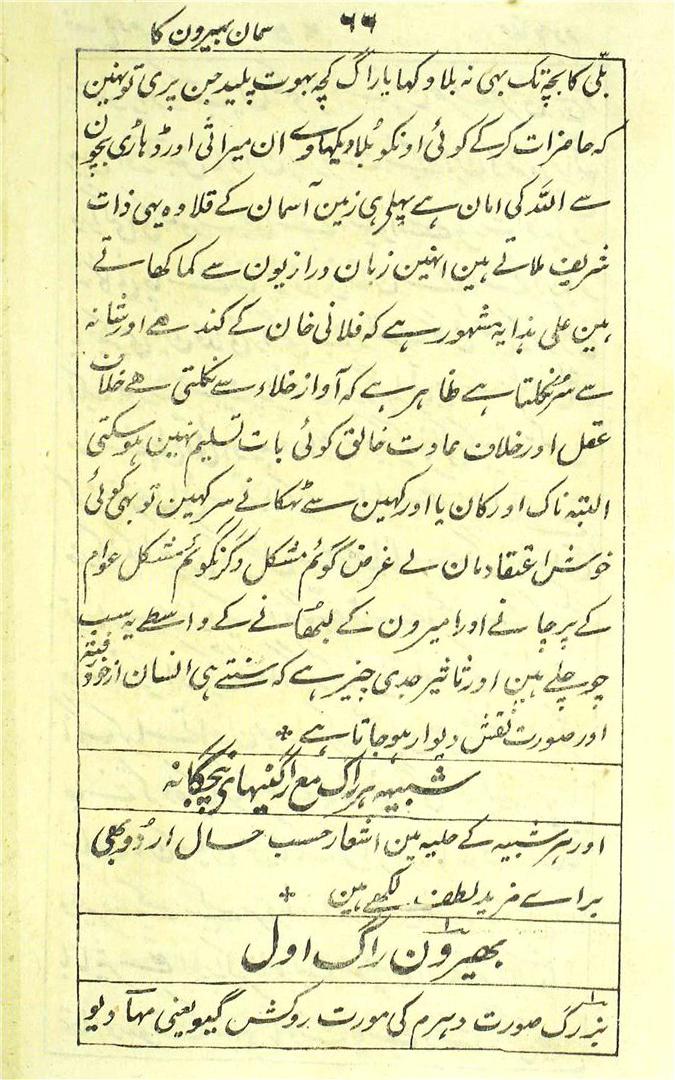 ۶۶ سمان بھیرون کا
بلّی کا بچہ تک بہی نہ بلاؤ کہا یا راگ کچھ بہوت پلید جن پری تو نہین
کہ حاضرات کرکے کوئی اونکو بُلا دیکہاوے ان میراثی اور ڈہاڑی بچون
سے اللہ کی امان ہے پہلے ہی زمین آسمان کے قلاوہ یہی ذات
شریف ملاتے ہین انہین زبان درازیون سے کما کھاتے
ہین علی ہذا یہ مشہور ہے کہ فلانی خان کے کندھے اور شانہ
سے سُر نکلتا ہے ظاہر ہے کہ آواز خلاء سے نکلتی ھے خلاف
عقل اور خلاف عادت خالق کوئی بات تسلیم نہین ہو سکتی
البتہ ناک اور کان یا اور کہین سے ٹہکانے سر کہین تو بہی کوئی
خوش اعتقاد مان لے غرض گوئم مشکل وگرنگوئم مشکل عوام
کے پرچانے اور امیرون کے لبھانے کے واسطے یہ سب
چوچلے ہین اور تاثیر جدی چیز ہے کہ سنتے ہی انسان از خود رفتہ
اور صورت نقش دیوار ہو جاتا ہے
شبیہ ہر راگ مع راگنیہای پنچگانہ
اور ہر شبیہ کے حلیہ مین اشعار حسب حال اردو بھی
براے مزید لطف لکھے ہین
بھیرون راگ اول
بزرگ صورت دہرم کی مورت روکش گیو یعنی مہا دیو